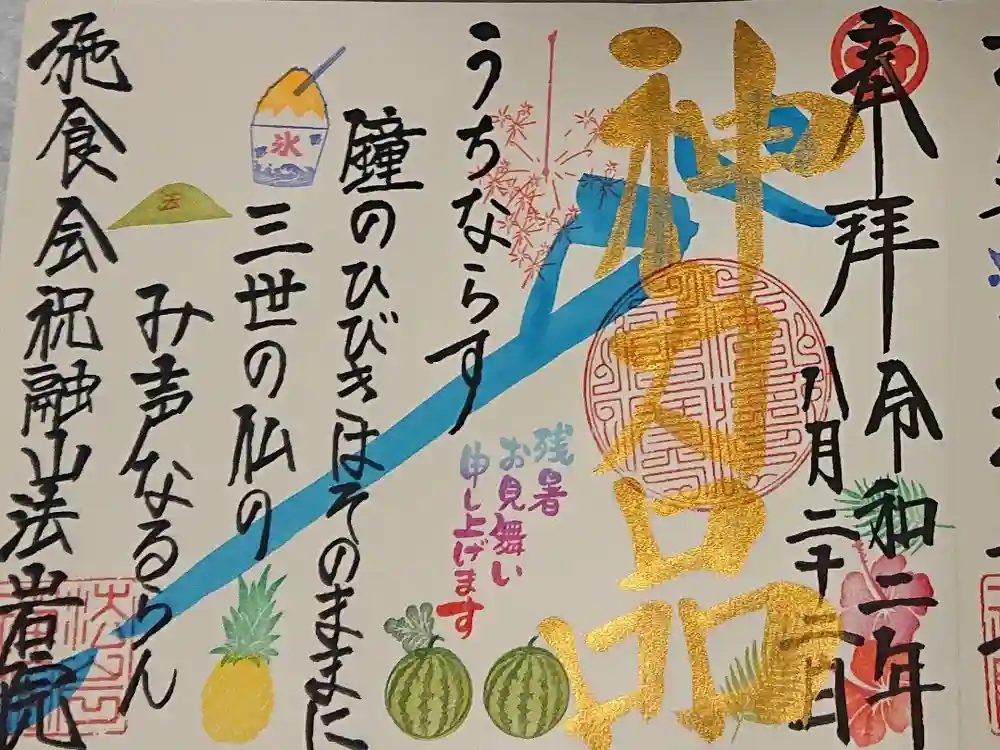 奉拝
令和二年
八月二十二日
神力品
うちならす
鐘のひびきはそのままに
三世の仏の
み声なるらん
残暑
お見舞い
申し上げます
氷
法
施食会祝融山法岩院